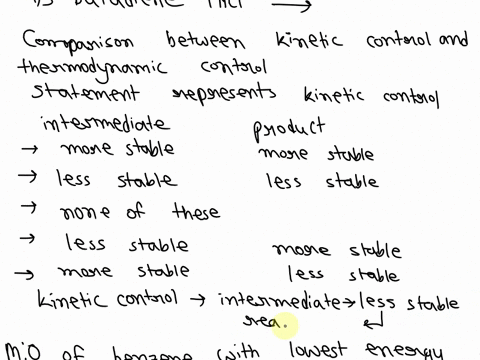 1,3 butadiene + HCl →
Comparison between kinetic control and
thermodynamic control
statement represents kinetic control
intermediate product
→ more stable more stable
→ less stable less stable
→ none of these
→ less stable more stable
→ more stable less stable
kinetic control → intermediate → less stable
rea. ↲
M.O of benzene with lowest energy